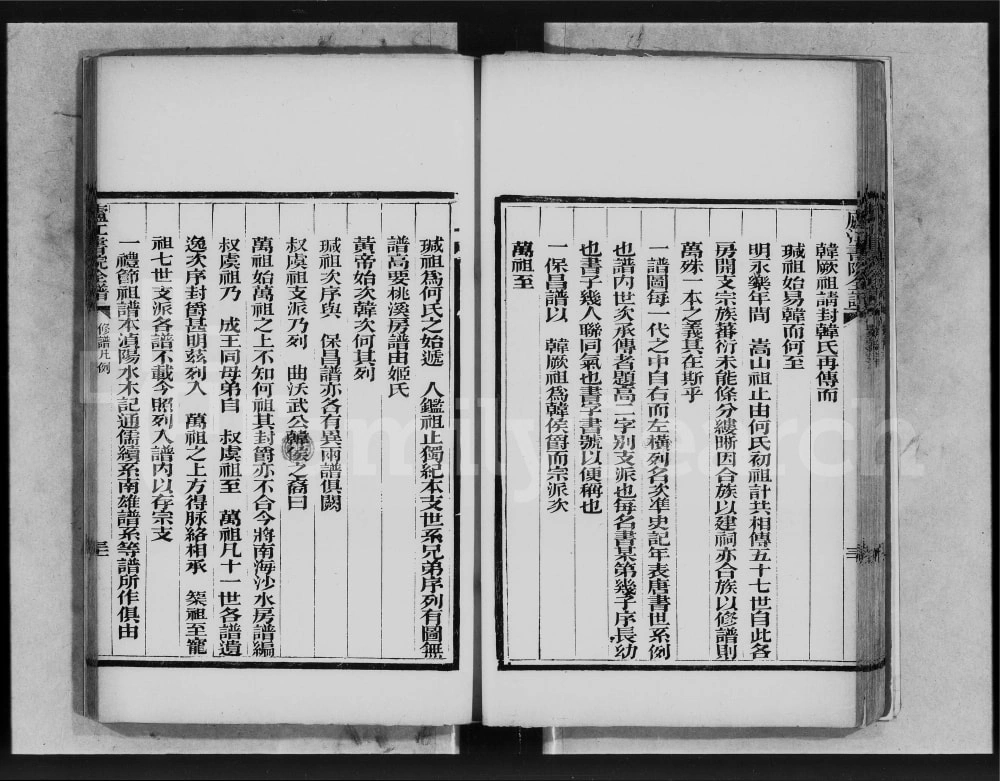 韓厥祖請封韓氏再傳而
瑊祖始易韓而何至
明永樂年間 嵩山祖止由何氏初祖計共相傳五十七世自此各
房開支宗族蕃衍未能條分縷晰因合族以建祠亦合族以修譜則
萬殊一本之義其在斯乎
一譜圖每一代之中自右而左橫列名次準史記年表唐書世系例
也譜内世次承傳者題高二字別支派也每名書某第幾子序長幼
也書子幾人聯同氣也書字書號以便稱也
一保昌譜以 韓厥祖為韓侯爵而宗派次
萬祖至
瑊祖為何氏之始遞 人鑑祖止獨紀本支世系兄弟序列有圖無
譜高要桃溪房譜由姬氏
黃帝始次韓次何其列
瑊祖次序與 保昌譜亦各有異兩譜俱闕
叔虞祖支派乃列 曲沃武公韓侯之裔曰
萬祖始萬祖之上不知何祖其封爵亦不合今將南海沙水房譜編
叔虞祖乃 成王同母弟自 叔虞祖至 萬祖凡十一世各譜遺
逸次序封爵甚明茲列入 萬祖之上方得脉絡相承 榘祖至寵
祖七世支派各譜不載今照列入譜内以存宗支
一禮節祖譜本滇陽水木記通儒續系南雄譜系等譜所作俱由
廬江書院全譜
修譜凡例
FamilySearch